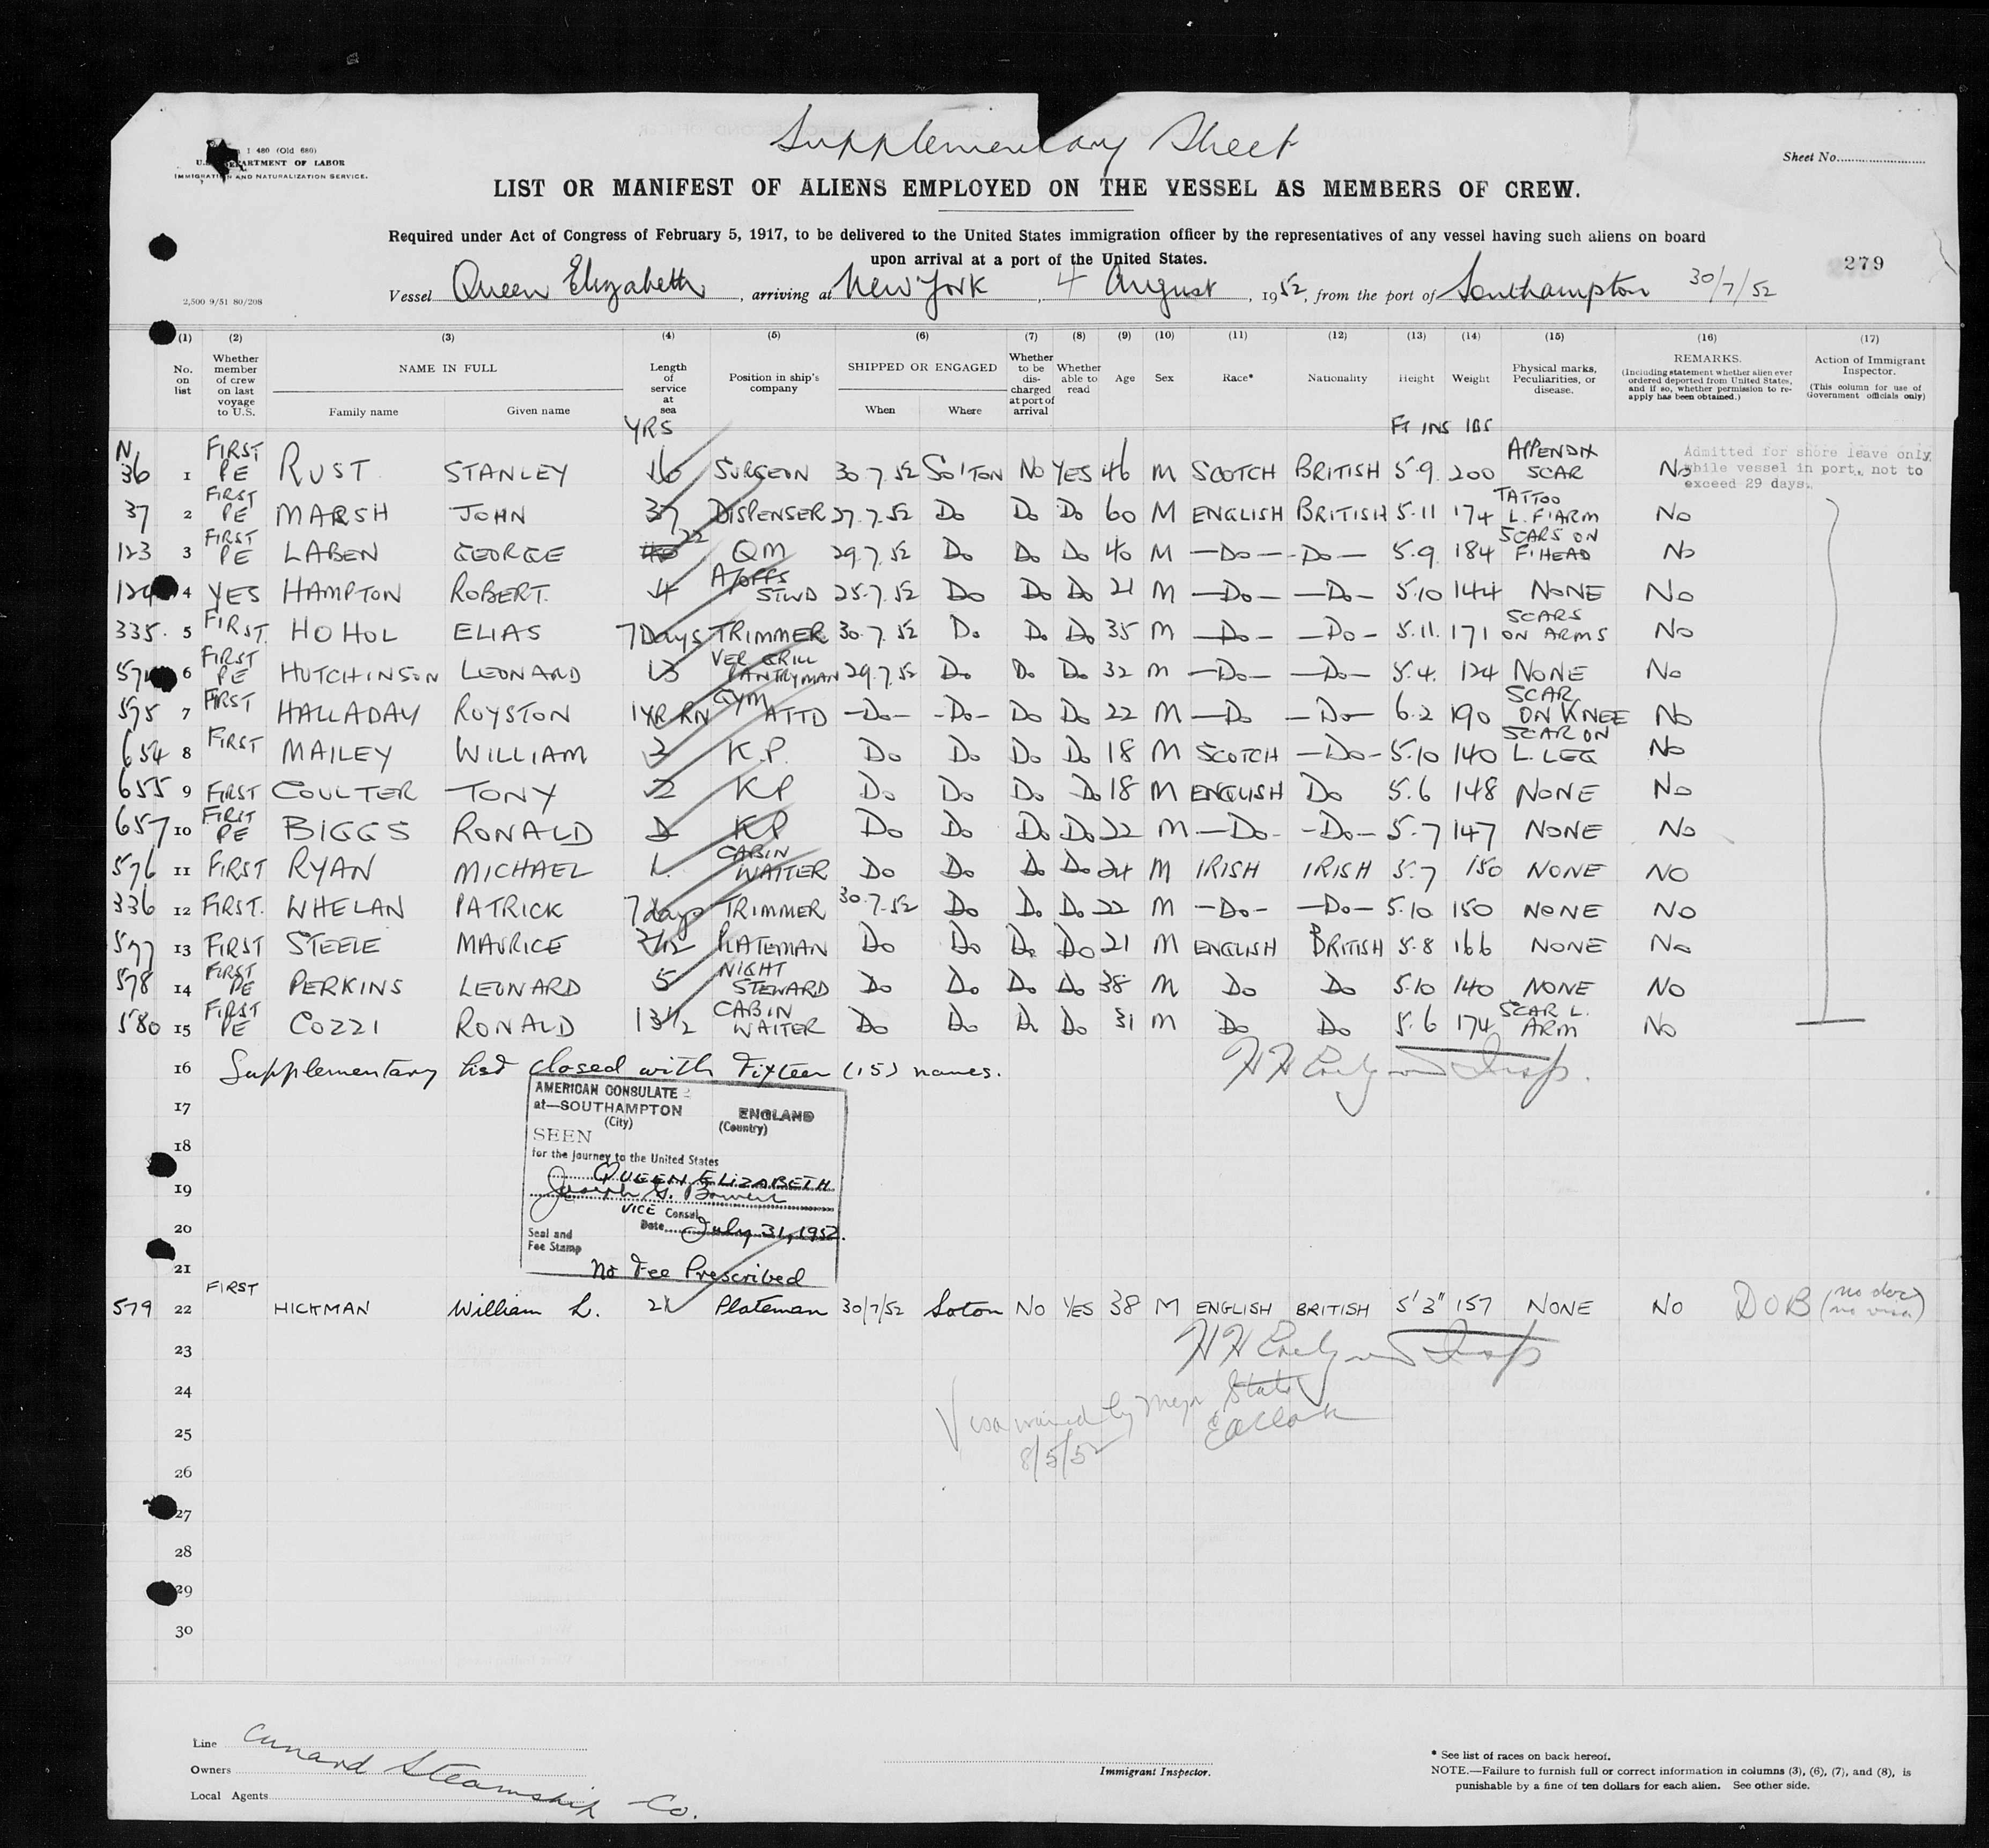 Supplementary Sheet
I 480 (Old 680)
U.S. DEPARTMENT OF LABOR
IMMIGRATION AND NATURALIZATION SERVICE.
Sheet No.
LIST OR MANIFEST OF ALIENS EMPLOYED ON THE VESSEL AS MEMBERS OF CREW.
Required under Act of Congress of February 5, 1917, to be delivered to the United States immigration officer by the representatives of any vessel having such aliens on board
upon arrival at a port of the United States.
279
2,500 9/51 80/208
Vessel Queen Elizabeth, arriving at New York, 4 August, 1952, from the port of Southampton 30/7/52
(1) (2) (3) (4) (5) (6) (7) (8) (9) (10) (11) (12) (13) (14) (15) (16) (17)
No. on list
Whether member of crew on last voyage to U.S.
NAME IN FULL
Family name Given name
Length of service at sea
Position in ship's company
SHIPPED OR ENGAGED
When Where
Whether to be discharged at port of arrival
Whether able to read
Age
Sex
Race*
Nationality
Height
Weight
Physical marks, Peculiarities, or disease.
REMARKS.
(Including statement whether alien ever ordered deported from United States, and if so, whether permission to re-apply has been obtained.)
Action of Immigrant Inspector.
(This column for use of Government officials only)
YRS FT INS lbs
Admitted for shore leave only
while vessel in port, not to
exceed 29 days.
N 36 1 FIRST PE RUST STANLEY 16 SURGEON 30.7.52 SO'TON No YES 46 M SCOTCH BRITISH 5.9. 200 APPENDIX SCAR No
37 2 FIRST PE MARSH JOHN 37 DISPENSER 27.7.52 Do Do Do 60 M ENGLISH BRITISH 5.11 174 TATTOO L. F'ARM No
123 3 FIRST PE LABEN GEORGE 22 QM 29.7.52 Do Do Do 40 M —Do— —Do— 5.9. 184 SCARS ON F'HEAD No
124 4 YES HAMPTON ROBERT. 4 A/OFFS STWD 25.7.52 Do Do Do 21 M —Do— —Do— 5.10 144 NONE No
335. 5 FIRST. HOHOL ELIAS 7 Days TRIMMER 30.7.52 Do Do Do 35 M —Do— —Do— 5.11. 171 SCARS ON ARMS No
574 6 FIRST PE HUTCHINSON LEONARD 13 VER GRILL PANTRYMAN 29.7.52 Do Do Do 32 M —Do— —Do— 5.4. 124 NONE No
575 7 FIRST HALLADAY ROYSTON 1YR RN GYM ATTD —Do— —Do— Do Do 22 M —Do —Do— 6.2 190 SCAR ON KNEE No
654 8 FIRST MAILEY WILLIAM 2 K.P. Do Do Do Do 18 M SCOTCH —Do— 5.10 140 SCAR ON L. LEG No
655 9 FIRST COULTER TONY 2 KP Do Do Do Do 18 M ENGLISH Do 5.6 148 NONE No
657 10 FIRST PE BIGGS RONALD KP Do Do Do Do 22 M —Do— —Do— 5.7 147 NONE No
576 11 FIRST RYAN MICHAEL 1. CABIN WAITER Do Do Do Do 24 M IRISH IRISH 5.7 150 NONE NO
336 12 FIRST. WHELAN PATRICK 7 days TRIMMER 30.7.52 Do Do Do 22 M —Do— —Do— 5.10 150 NONE NO
577 13 FIRST STEELE MAURICE PLATEMAN Do Do Do Do 21 M ENGLISH BRITISH 5.8 166 NONE No
578 14 FIRST PE PERKINS LEONARD 5 NIGHT STEWARD Do Do Do Do 38 M Do Do 5.10 140 NONE NO
580 15 FIRST PE COZZI RONALD 13½ CABIN WAITER Do Do Do Do 31 M Do Do 5.6 174 SCAR L. ARM No
16 Supplementary list closed with Fixteen (15) names.
17
AMERICAN CONSULATE
at—SOUTHAMPTON ENGLAND
(City) (Country)
18
SEEN
for the journey to the United States
QUEEN ELIZABETH
19
Joseph G.
VICE Consul
20
Date July 31, 1952.
Seal and
Fee Stamp
No Fee Prescribed
21
579 22 FIRST HICKMAN William L. Plateman 30/7/52 Soton NO YES 38 M ENGLISH BRITISH 5' 3" 157 NONE NO DOB (no doc) (no visa)
23
24
Visa waived by State
25
8/5/52
26
27
28
29
30
Line Cunard Steamship Co.
Owners
Local Agents
Immigrant Inspector.
* See list of races on back hereof.
NOTE.—Failure to furnish full or correct information in columns (3), (6), (7), and (8), is
punishable by a fine of ten dollars for each alien. See other side.